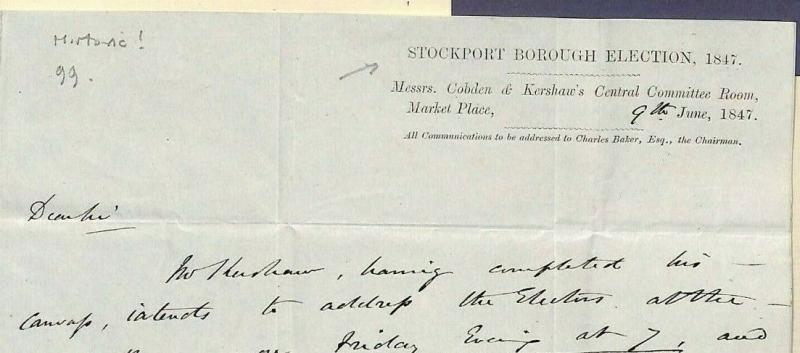 Historic!
99.
STOCKPORT BOROUGH ELECTION, 1847.
Messrs. Cobden & Kershaw's Central Committee Room,
Market Place, 9th June, 1847.
All Communications to be addressed to Charles Baker, Esq., the Chairman.
Dear Sir
Mr Kershaw, having completed his –
canvass, intends to address the Electors at the –
on Friday Evening at 7, and